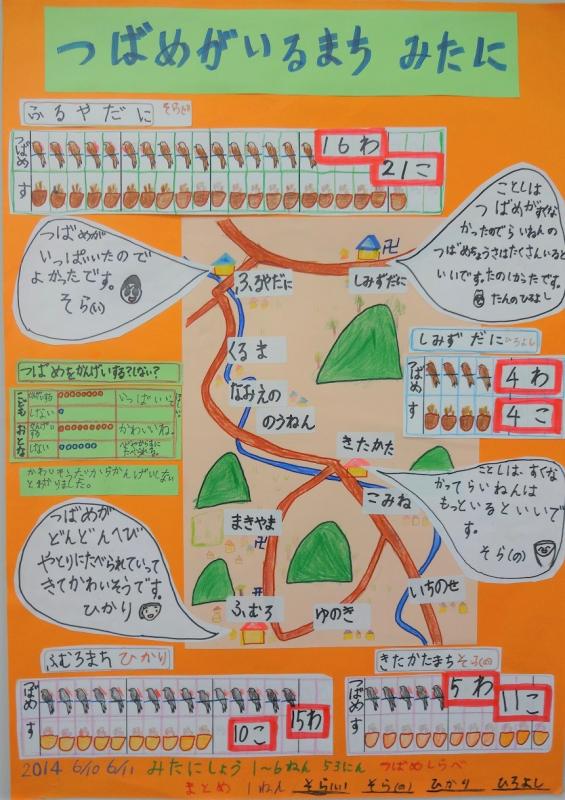 つばめがいるまち みたに
ふるやだに
つばめ
16わ
す
21こ
ことしは
つばめがすくな
かったのでらいねんの
つばめちょうさはたくさんいると
いいです。たのしかったです。
たんのひろよし
つばめが
いっぱいいたので
よかったです。
そら(い)
ふるやだに
しみずだに
卍
くるま
なおえの
のうねん
しみずだに ひろよし
つばめ
4わ
す
4こ
つばめをかんげいする?しない?
こども
しない
いっぱいいて
おとな
かわいいわ。
しない
きたかた
こみね
まきやま
卍
いちのせ
ゆのき
ふむろ
卍
ことしは、すくな
かってらいねんは
もっといるといいで
す。
そら(の)
つばめが
どんどんへび
やとりにたべられていって
きてかわいそうです。
ひかり
ふむろまち ひかり
つばめ
15わ
す
10こ
きたかたまち そら(の)
つばめ
5わ
す
11こ
2014 6/10 6/11 みたにしょう 1~6ねん 53にん つばめしらべ
まとめ 1ねん そら(い) そら(の) ひかり ひろよし